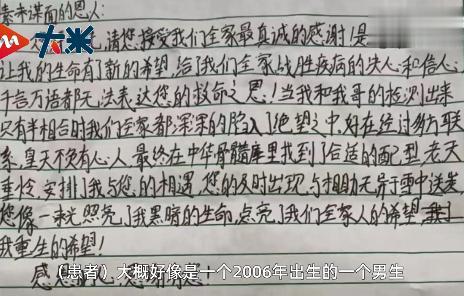 素未谋面的恩人:
大米
请您接受我们全家最真诚的感谢!是
让我的生命有了新的希望,给了我们全家战胜疾病的决心和信心,
千言万语都无法表达您的救命之恩!当我和我哥的检测出来
只有半相合时我们全家都深深的陷入了绝望之中,好在经过多方联
系,皇天不负有心人,最终在中华骨髓库里找到了合适的配型,老天
垂怜,安排了我与您的相遇,您的及时出现与相助无异于雪中送炭,
您像一束光照亮了我黑暗的生命,点亮了我们全家人的希望
我重生的希望!
(患者)大概好像是一个2006年出生的一个男生